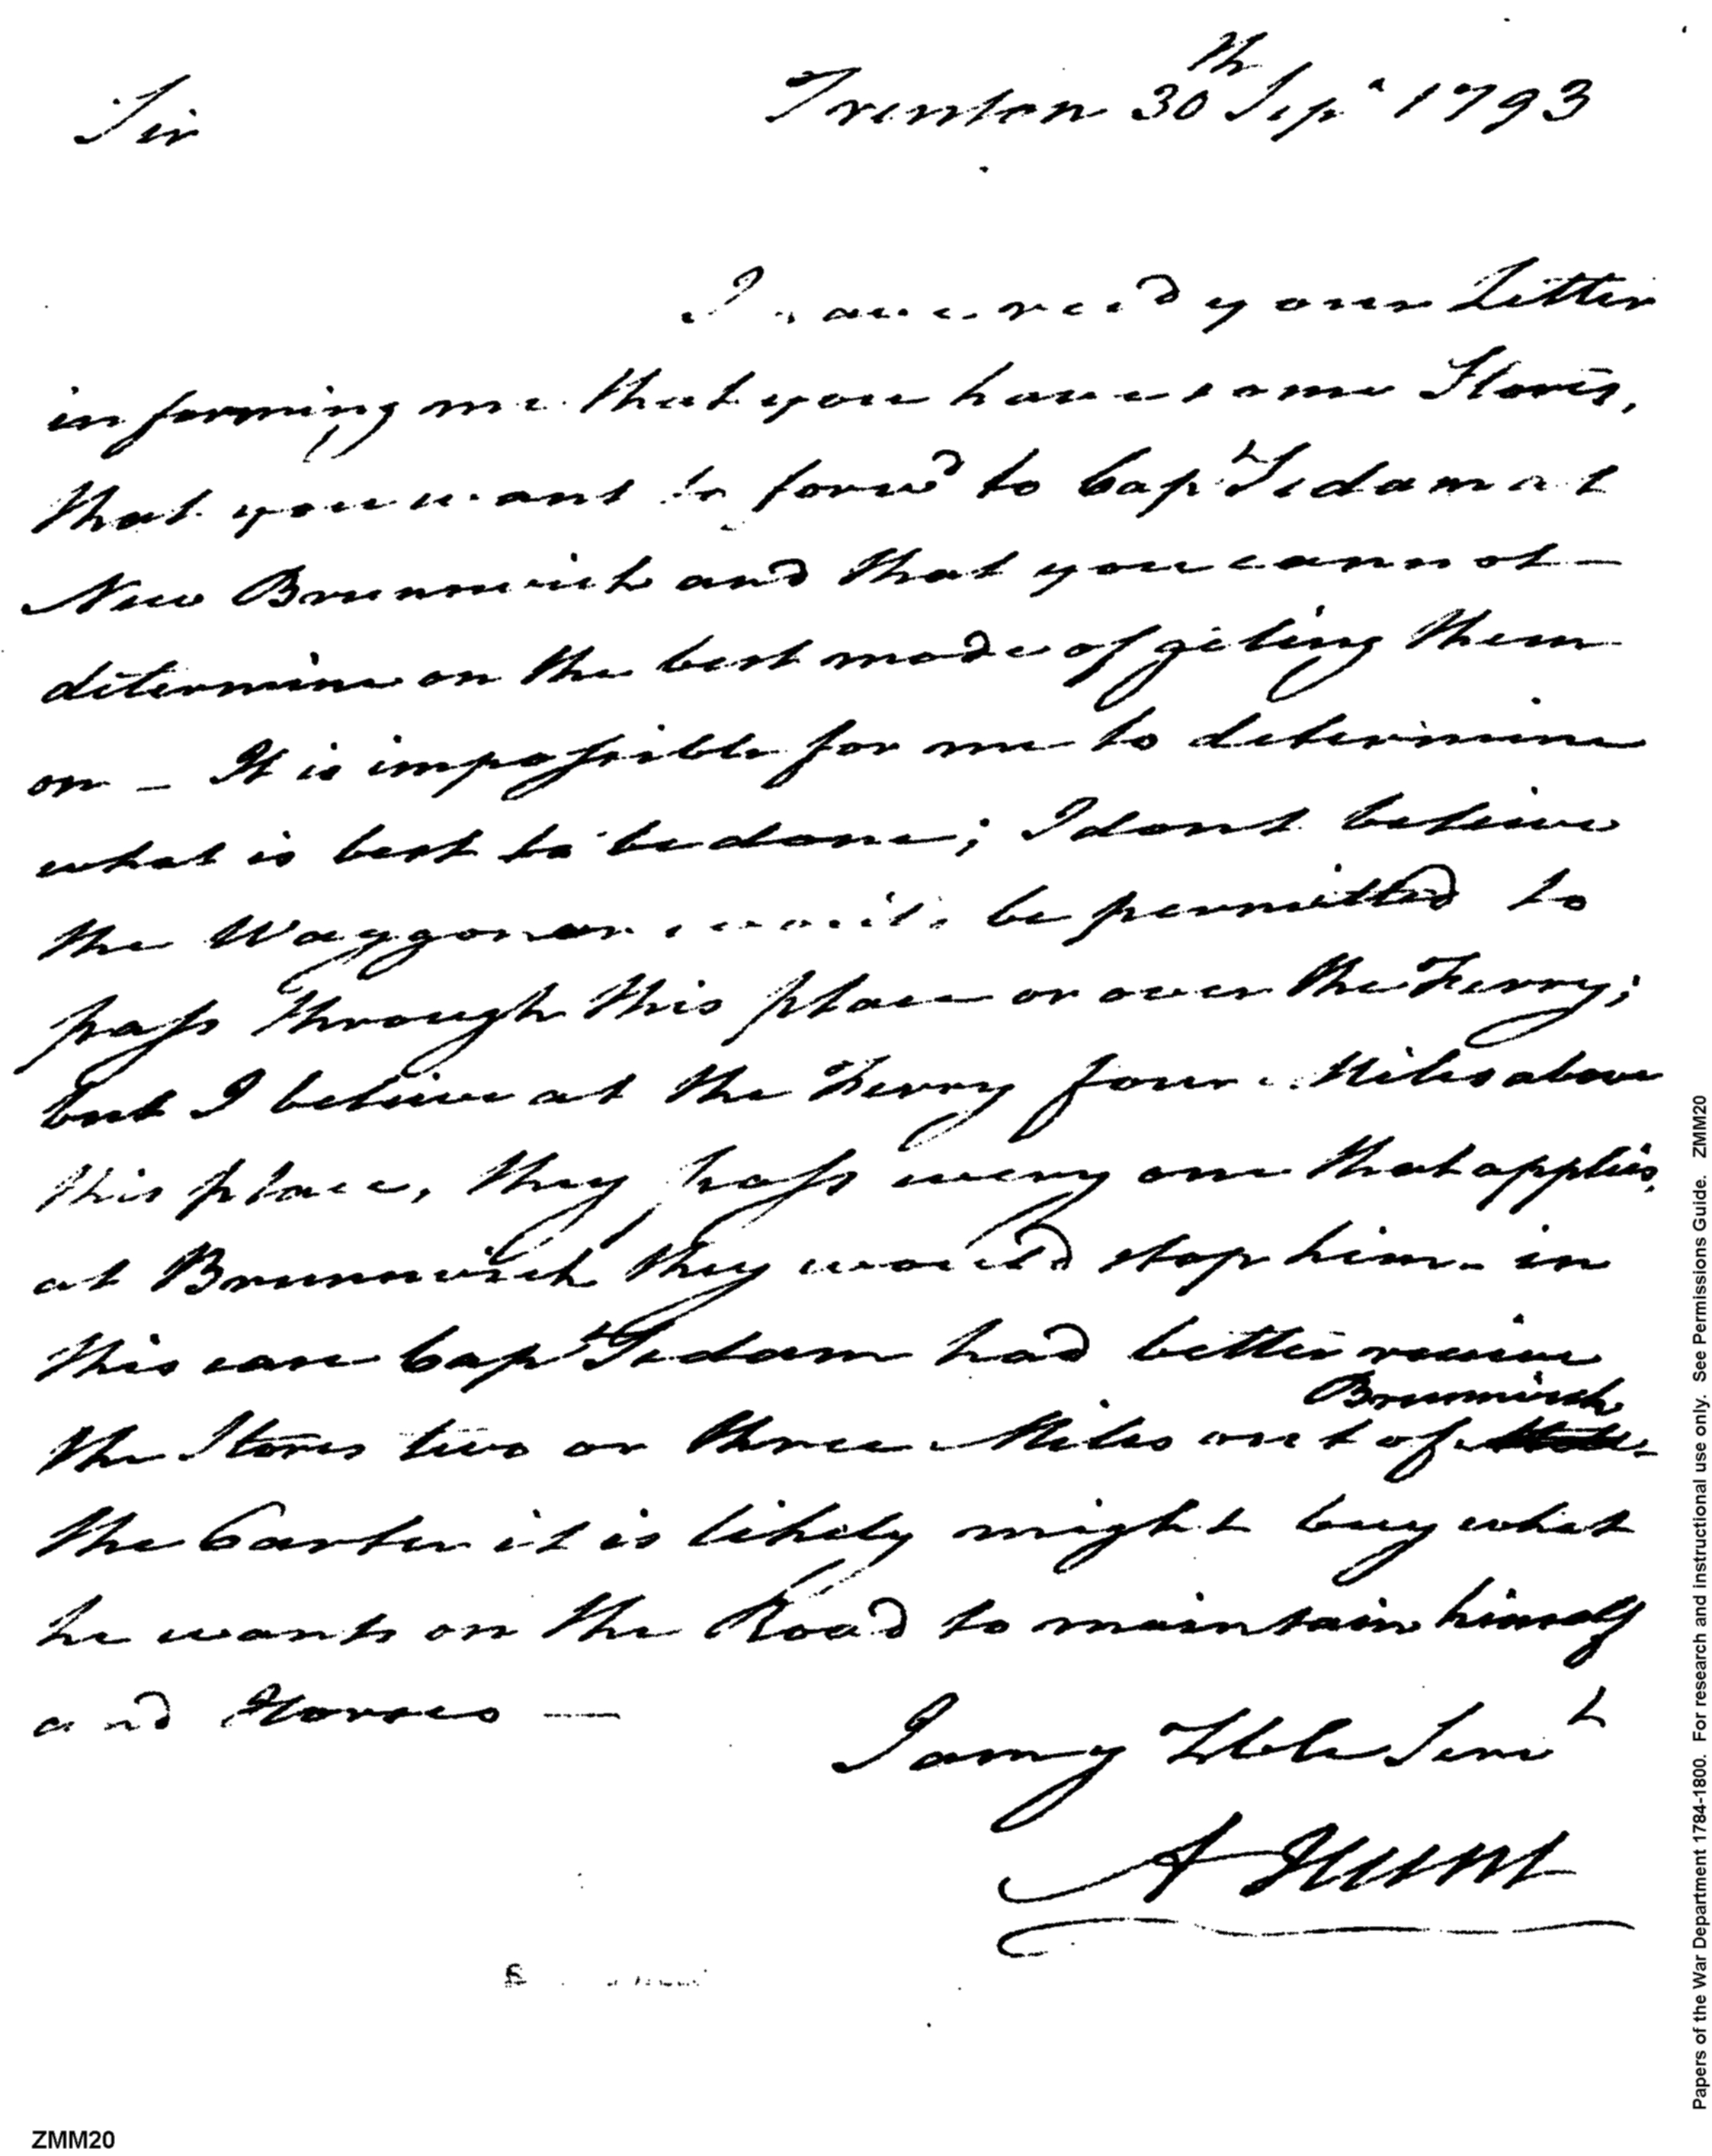 Trenton 30th Sepr 1793
Sir
I have recd your Letter
informing me that you have some Stores,
that you want to forwd to Capt Tedam at
New Brunswick and that you cannot –
determine on the best mode of geting them
on – It is impossible for me to determine
what is best to be done; I dont believe
the Waggoner would be permitted to
pass through this place or over the Ferry;
but I believe at the Ferry four Miles above
this place, they pass every one that applies,
at Brunswick they would stop him – in
this case Capt Tedam had better receive
the Stores two or three Miles out of
Brunswick
the Carter it is likely might buy what
he wants on the Road to maintain himself
and Horses —
I am yr Hble Servt
A Hunt
Papers of the War Department 1784-1800. For research and instructional use only. See Permissions Guide. ZMM20
ZMM20